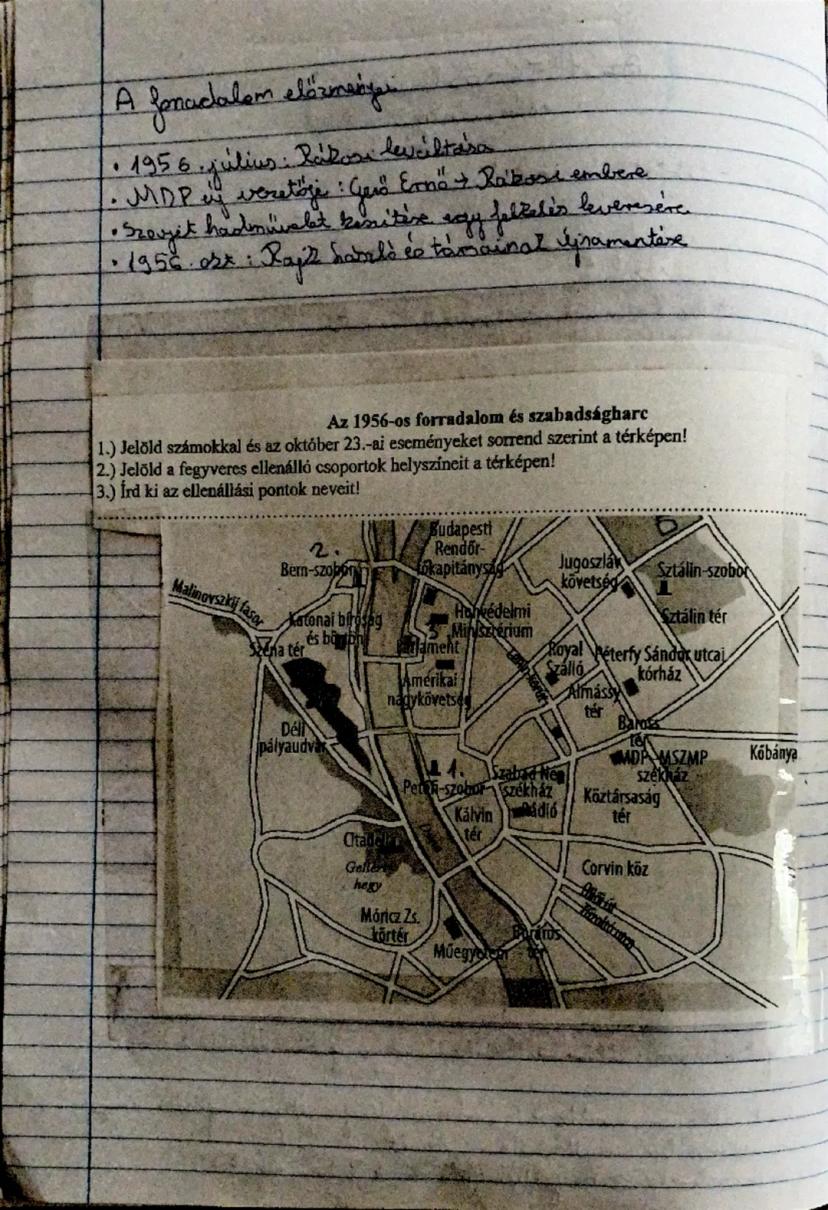 A forradalom előzményei
• 1956. július: Rákosi leváltása
• MDP új vezetője: Gerő Ernő → Rákosi embere
• Szovjet hadművelet készítése egy felkelés leverésére
• 1956. okt: Rajk László és társainak újratemetése
Az 1956-os forradalom és szabadságharc
1.) Jelöld számokkal és az október 23.-ai eseményeket sorrend szerint a térképen!
2.) Jelöld a fegyveres ellenálló csoportok helyszíneit a térképen!
3.) Írd ki az ellenállási pontok neveit!
Budapesti
Rendőr-
főkapitányság
2.
Bem-szobor
Jugoszláv
követség
Sztálin-szobor
Malinovszkij fasor
Katonai bíróság
és börtön
Honvédelmi
Minisztérium
Sztálin tér
Széna tér
3
Parlament
Royal
Szálló
Péterfy Sándor utcai
kórház
Amerikai
nagykövetség
Almássy
tér
Déli
pályaudvar
Baross
tér
MDP-MSZMP
székház
Kőbánya
1.
Petőfi-szobor
Szabad Nép
székház
Rádió
Köztársaság
tér
Kálvin
tér
Citadella
Gellért-
hegy
Corvin köz
Üllői út
Móricz Zs.
körtér
Műegyetem
Boráros
tér